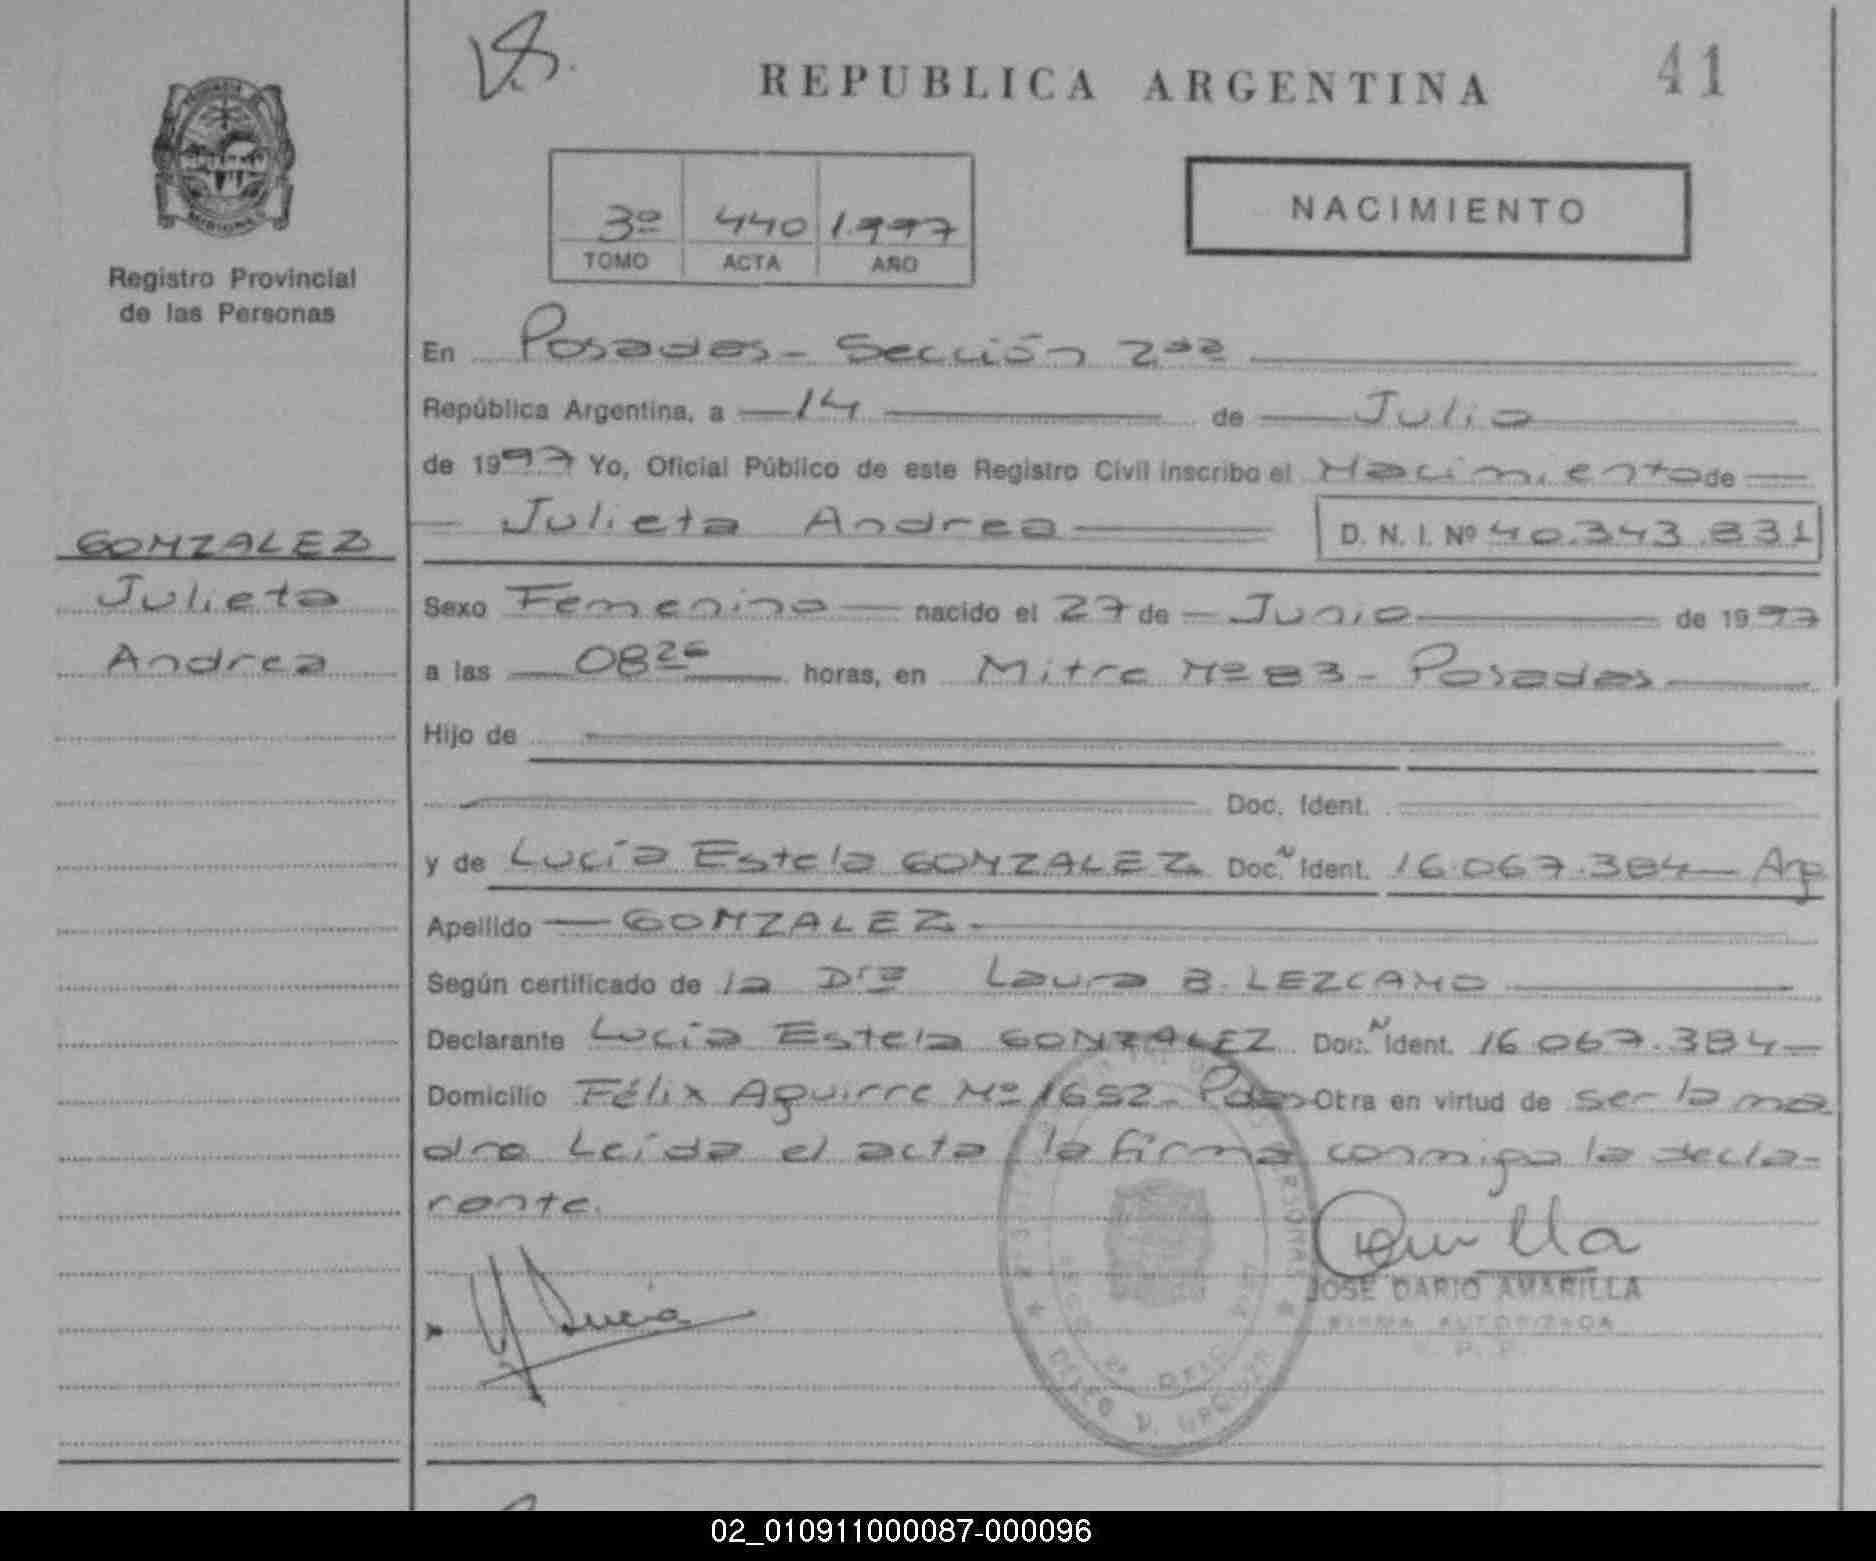 41
REPUBLICA ARGENTINA
3º 440 1.997
TOMO ACTA AÑO
NACIMIENTO
Registro Provincial
de las Personas
En Posadas - Sección 2da
República Argentina, a 14 de Julio
de 1997 Yo, Oficial Público de este Registro Civil inscribo el Nacimiento de
Julieta Andrea D. N. I. Nº 40.343.831
GONZALEZ
Julieta
Andrea
Sexo Femenino nacido el 27 de Junio de 1997
a las 08 26 horas, en Mitre Nº 83 - Posadas
Hijo de
Doc. Ident.
y de Lucía Estela GONZALEZ Doc. N Ident. 16.067.384 Arg
Apellido GONZALEZ
Según certificado de la Dra Laura B. LEZCANO
Declarante Lucía Estela GONZALEZ Doc. N Ident. 16.067.384
Domicilio Félix Aguirre Nº 1652 - Pdas Otra en virtud de ser la ma
dre Leída el acta la firma conmigo la decla-
rante.
Lucia
JOSE DARIO AMARILLA
FIRMA AUTORIZADA
02_010911000087-000096